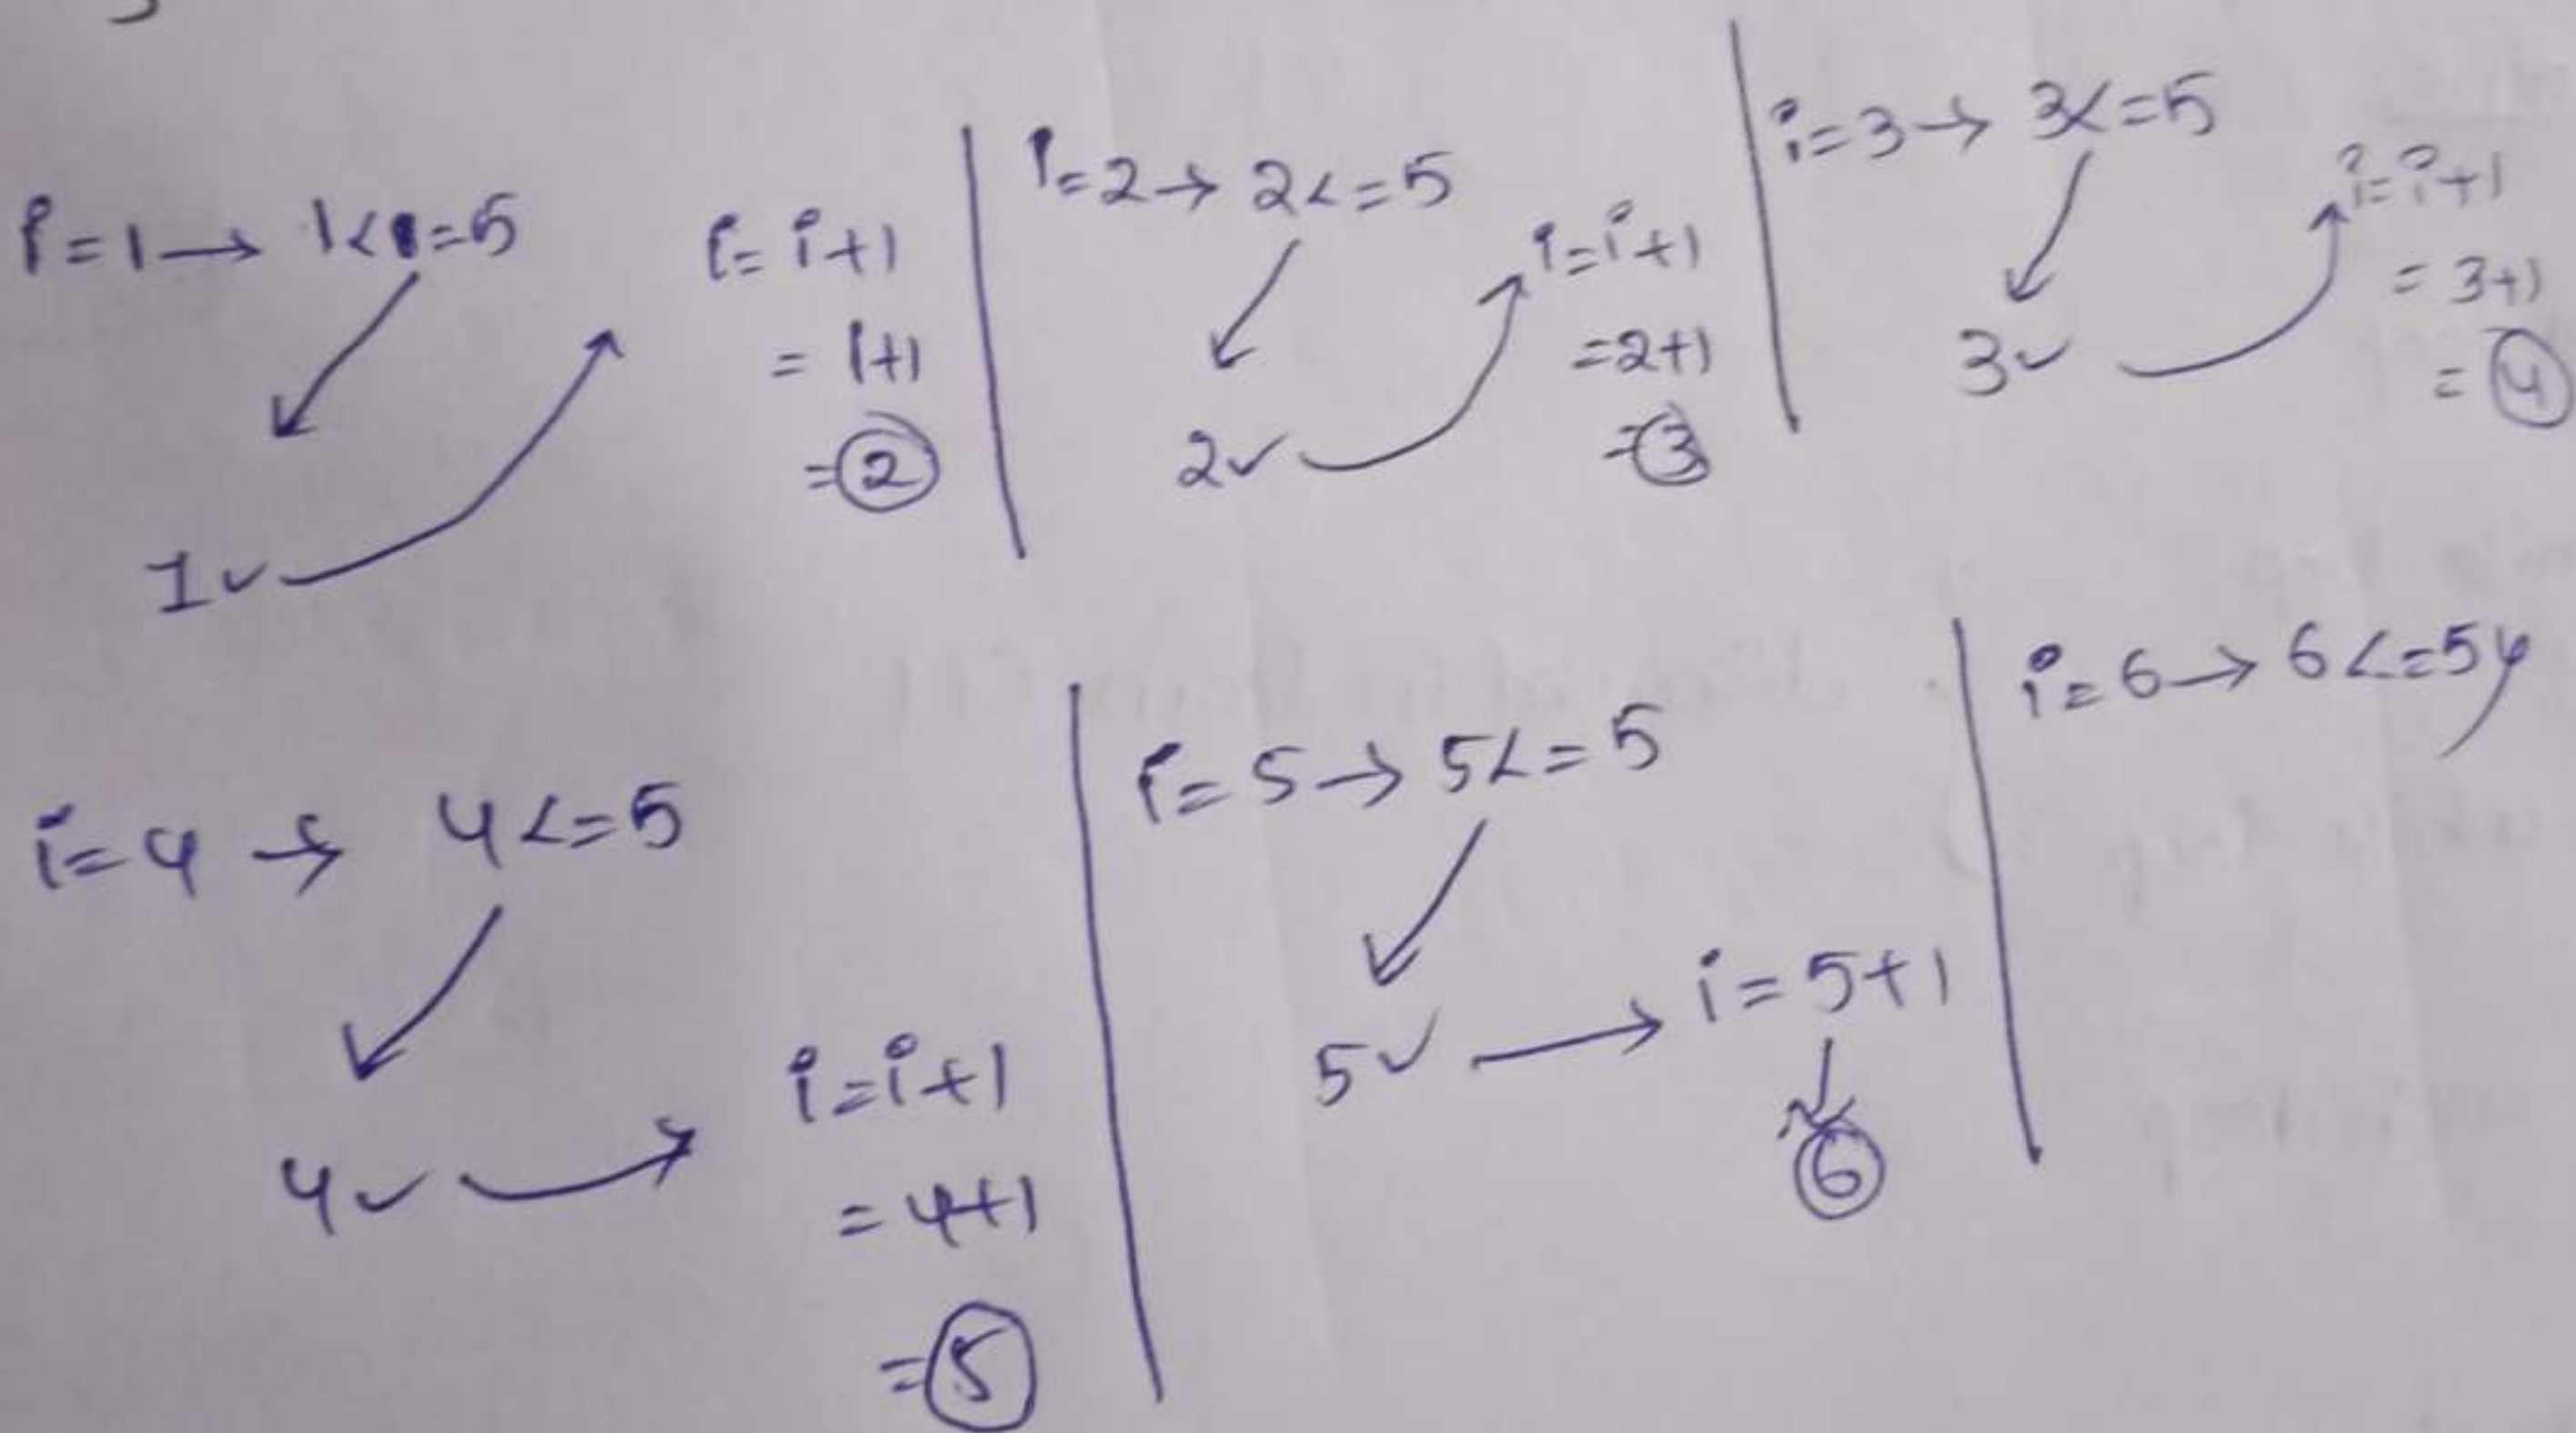 i=1→ 1<=5
i= i+1
= 1+1
=2
1✓
i=2→ 2<=5
i=i+1
=2+1
=3
2✓
i=3→ 3<=5
i=i+1
= 3+1
= 4
3✓
i=4 → 4<=5
4✓
i=i+1
= 4+1
=5
i=5→ 5<=5
5✓ → i=5+1
6
i=6→ 6<=5